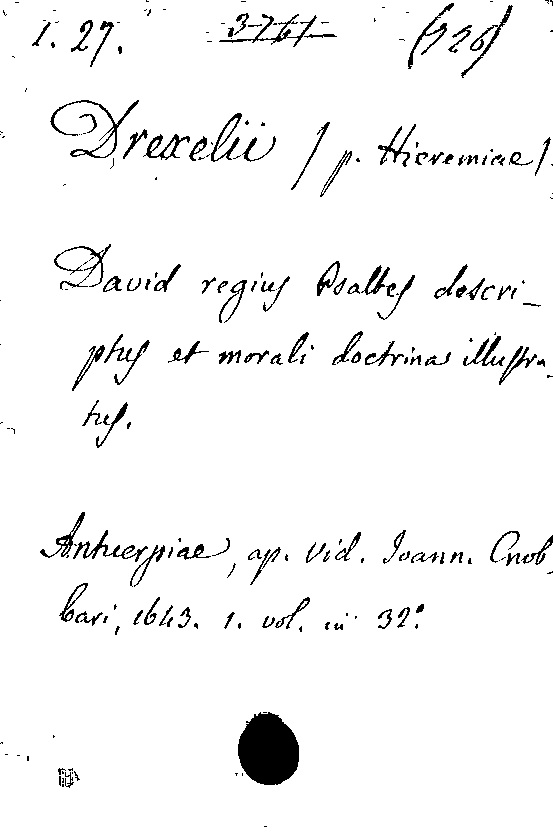 1. 27. 3761 (726)
Drexelii / p. Hieremiae /.
David regius Psaltes descri-
ptus et morali doctrina illustra-
tus.
Antuerpiae, ap. Vid. Ioann. Cnob-
bari, 1643. 1. vol. in 32°.